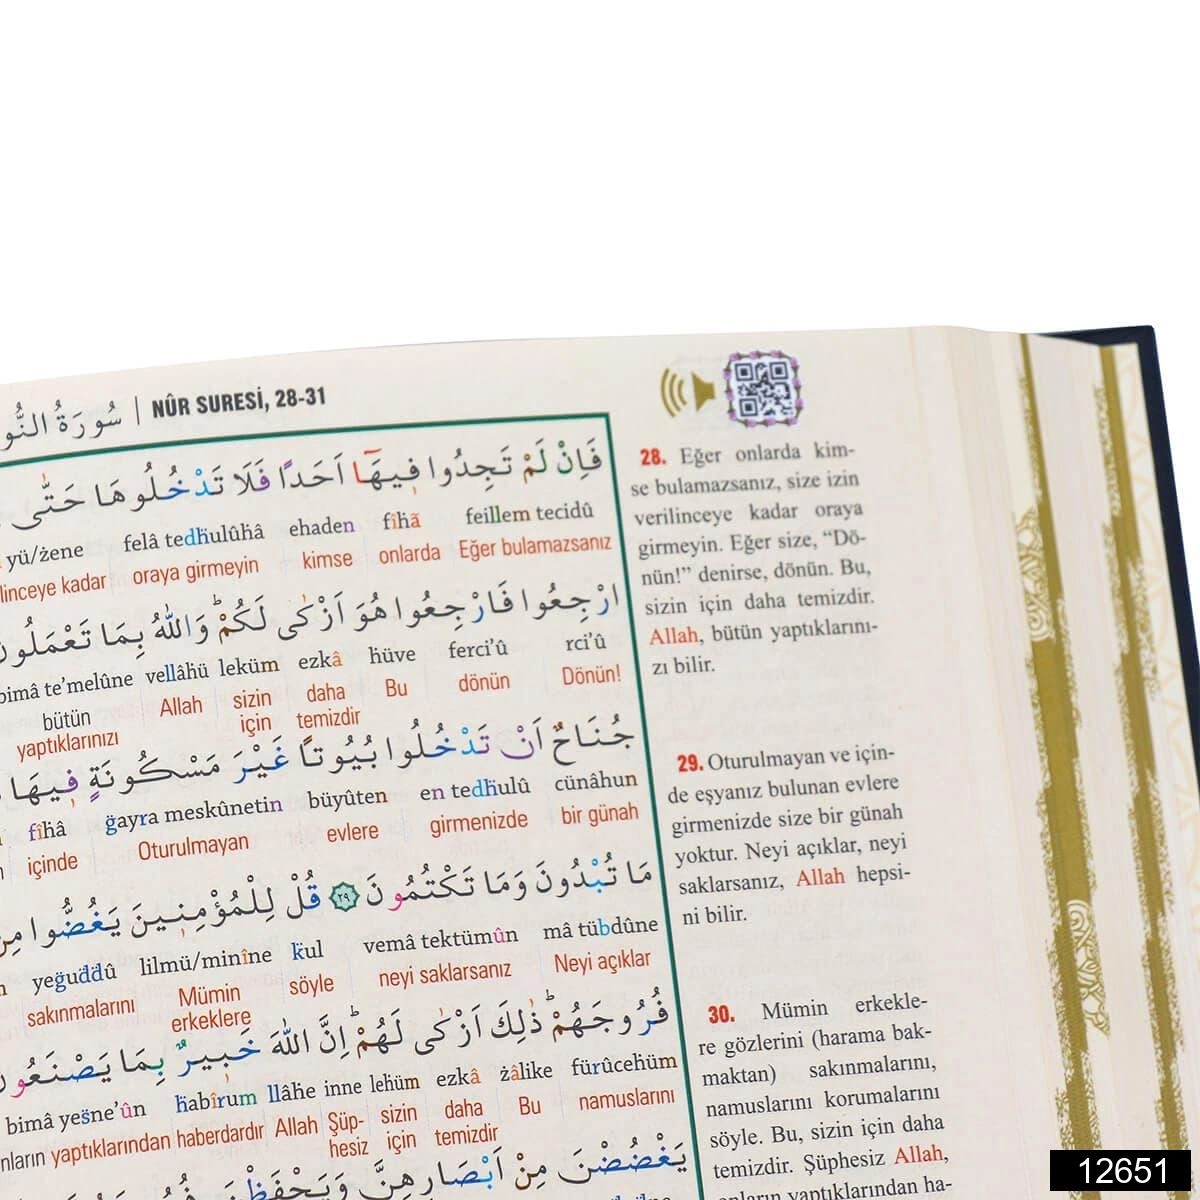 سُورَةُ النُّو | NÛR SURESİ, 28-31
فَاِنْ لَمْ تَجِدُوا فِيهَٓا اَحَدًا فَلَا تَدْخُلُوهَا حَتّٰى
yü/żene felâ tedḣulûhâ ehaden fîhã feillem tecidû
linceye kadar oraya girmeyin kimse onlarda Eğer bulamazsanız
ارْجِعُوا فَارْجِعُوا هُوَ اَزْكٰى لَكُمْۜ وَاللّٰهُ بِمَا تَعْمَلُونَ
bimâ te’melûne vellâhü leküm ezkâ hüve ferci’û rci’û
bütün yaptıklarınızı Allah sizin için daha temizdir Bu dönün Dönün!
جُنَاحٌ اَنْ تَدْخُلُوا بُيُوتًا غَيْرَ مَسْكُونَةٍ فِيهَا
fîhâ ğayra meskûnetin büyûten en tedḣulû cünâhun
içinde Oturulmayan evlere girmenizde bir günah
مَا تُبْدُونَ وَمَا تَكْتُمُونَ ﴿٢٩﴾ قُلْ لِلْمُؤْمِنِينَ يَغُضُّوا مِنْ
yeğuddû lilmü/minîne kul vemâ tektümûn mâ tübdûne
sakınmalarını Mümin erkeklere söyle neyi saklarsanız Neyi açıklar
فُرُوجَهُمْۜ ذٰلِكَ اَزْكٰى لَهُمْۜ اِنَّ اللّٰهَ خَبِيرٌ بِمَا يَصْنَعُونَ
bimâ yesne’ûn ḣabîrum llâhe inne lehüm ezkâ żâlike fürûcehüm
nların yaptıklarından haberdardır Allah Şüphesiz sizin için daha temizdir Bu namuslarını
يَغْضُضْنَ مِنْ اَبْصَارِهِنَّ وَيَحْفَظْنَ
28. Eğer onlarda kim-
se bulamazsanız, size izin
verilinceye kadar oraya
girmeyin. Eğer size, “Dö-
nün!” denirse, dönün. Bu,
sizin için daha temizdir.
Allah, bütün yaptıklarını-
zı bilir.
29. Oturulmayan ve için-
de eşyanız bulunan evlere
girmenizde size bir günah
yoktur. Neyi açıklar, neyi
saklarsanız, Allah hepsi-
ni bilir.
30. Mümin erkekle-
re gözlerini (harama bak-
maktan) sakınmalarını,
namuslarını korumalarını
söyle. Bu, sizin için daha
temizdir. Şüphesiz Allah,
onların yaptıklarından ha-
12651